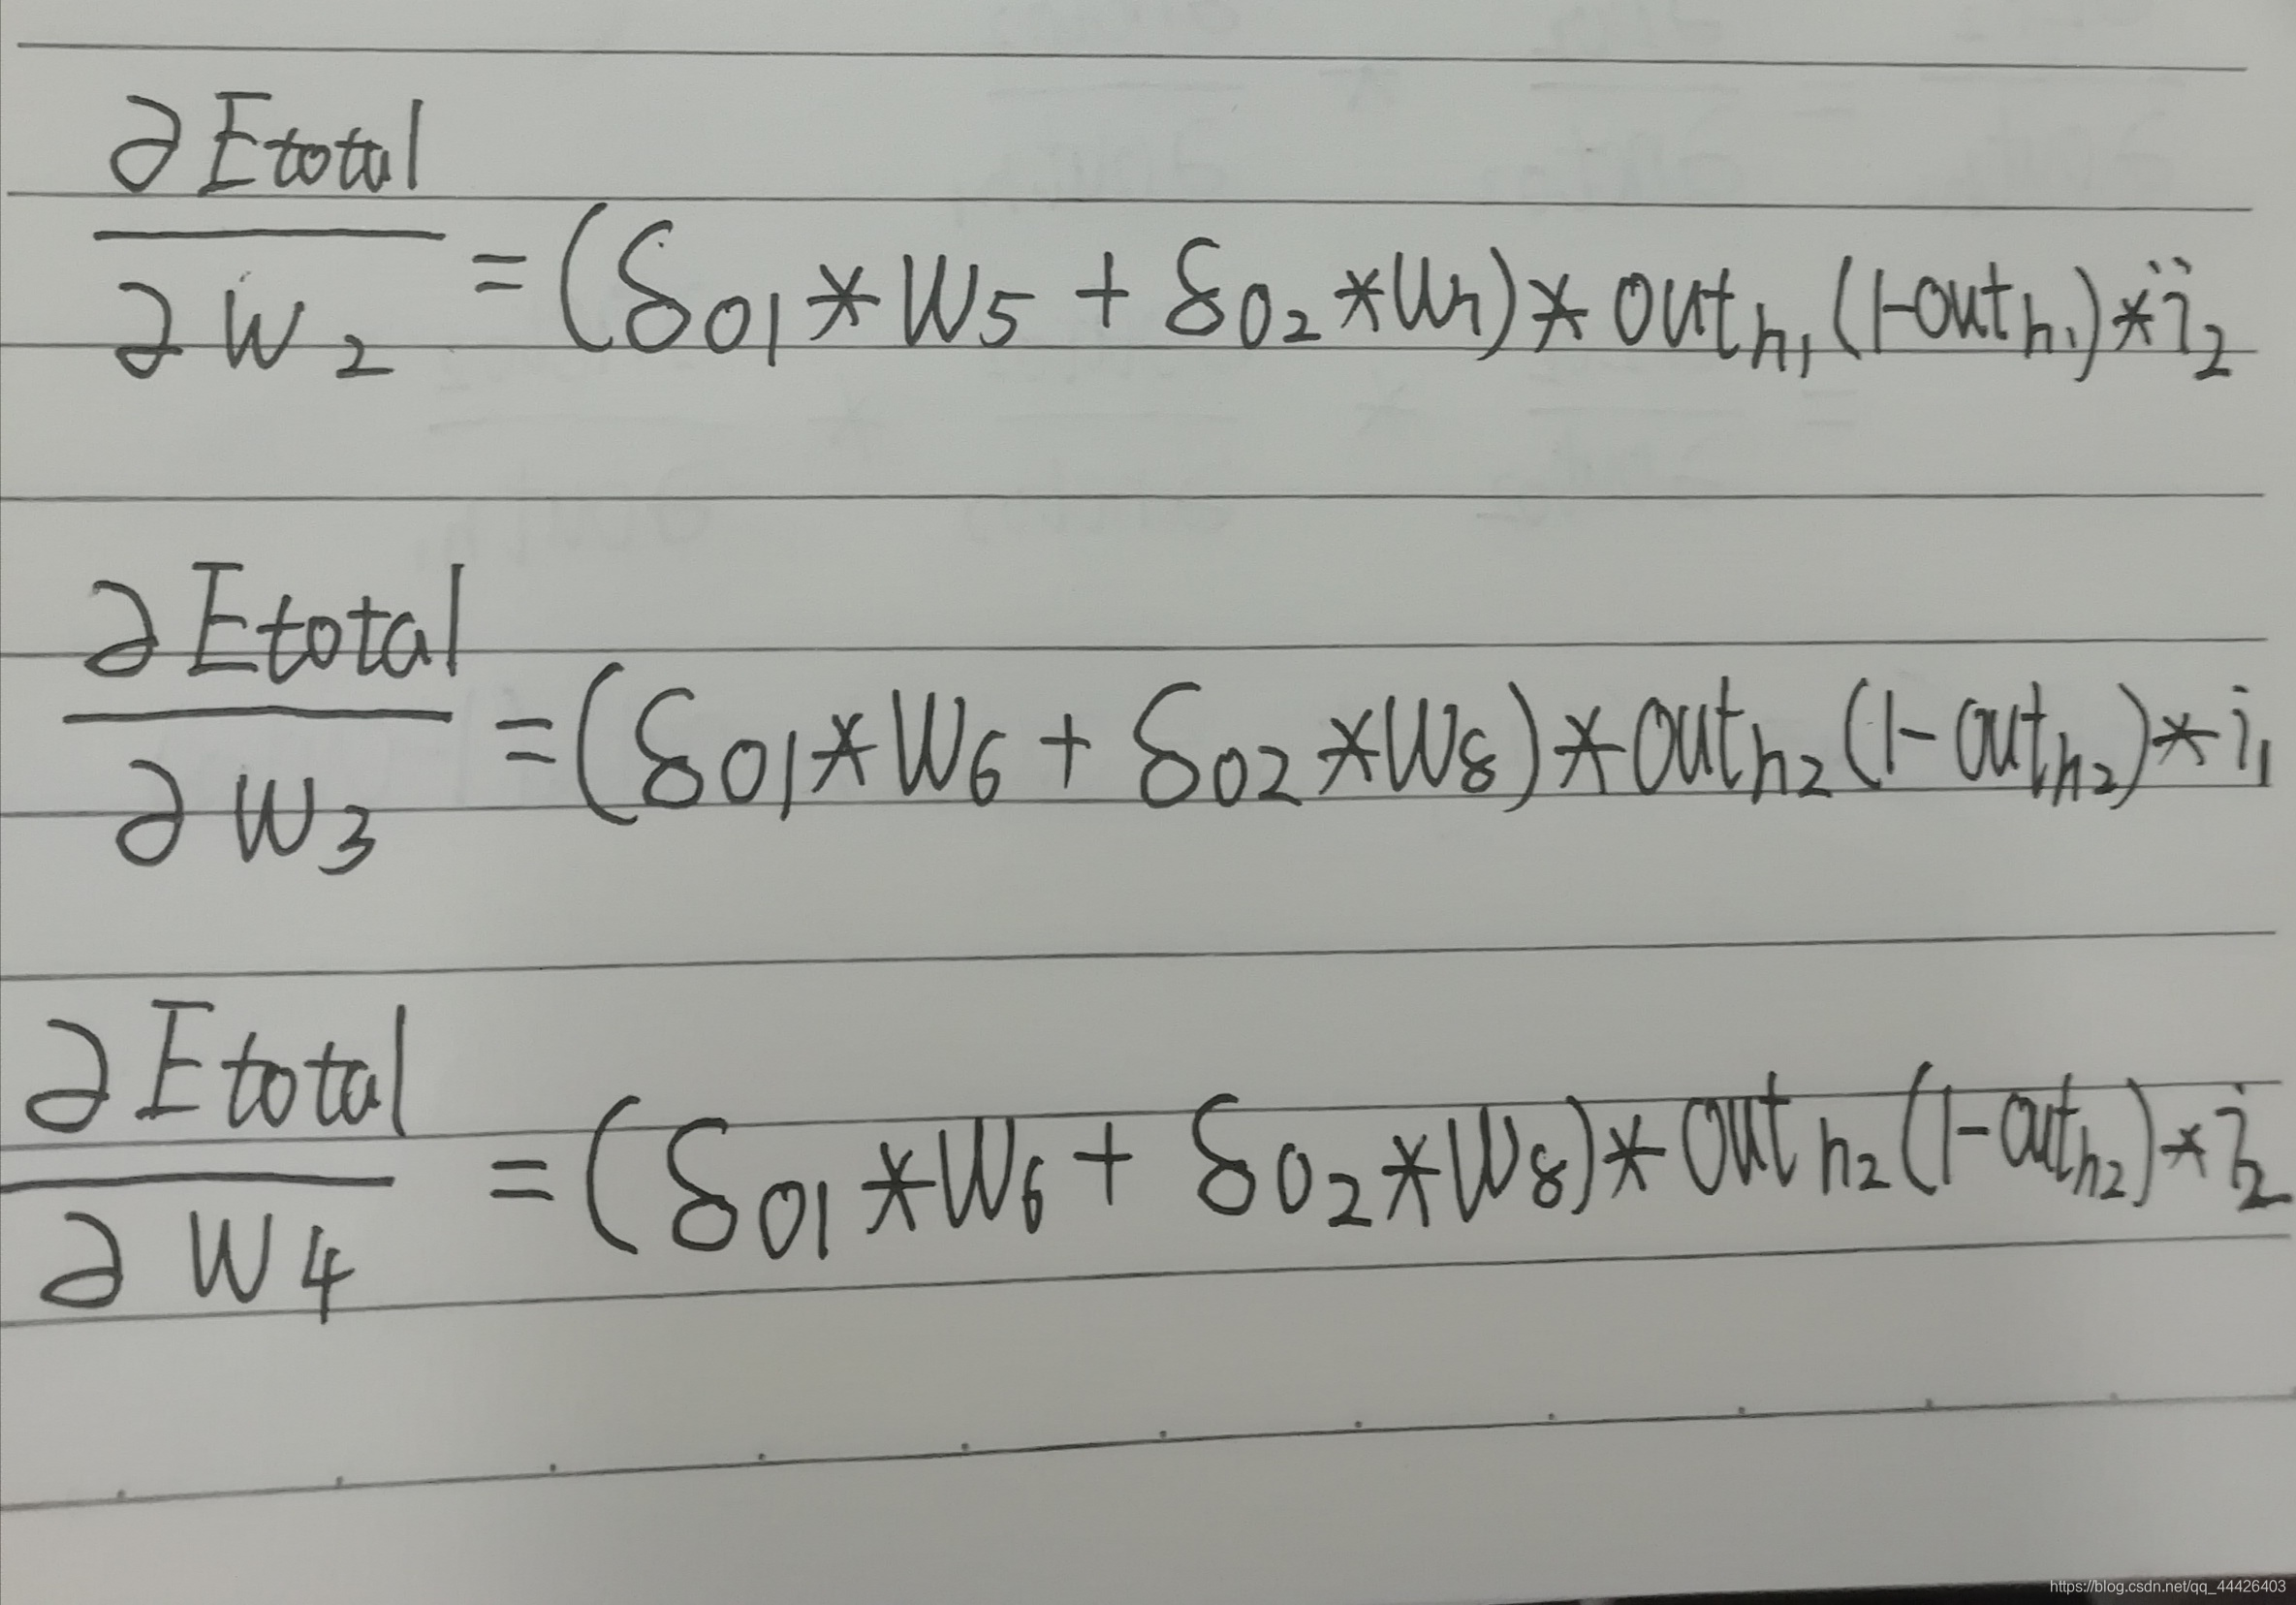 ∂Etotal / ∂w2 = (δo1 * w5 + δo2 * w7) * outh1 (1-outh1) * i2
∂Etotal / ∂w3 = (δo1 * w6 + δo2 * w8) * outh2 (1-outh2) * i1
∂Etotal / ∂w4 = (δo1 * w6 + δo2 * w8) * outh2 (1-outh2) * i2
https://blog.csdn.net/qq_44426403